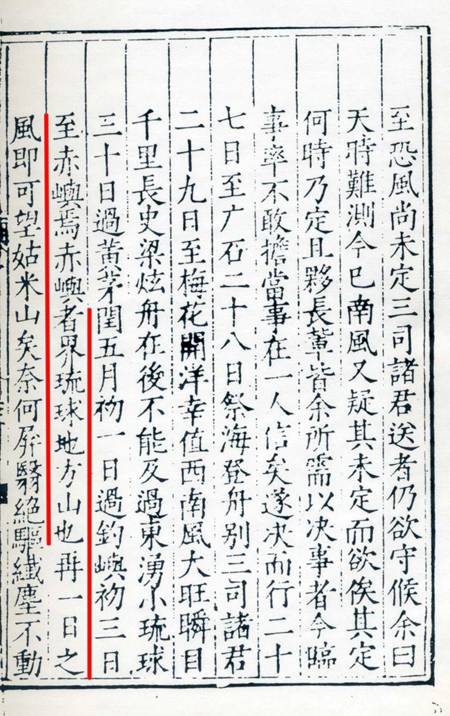 至恐風尚未定三司諸君送者仍欲守候余曰
天時難測今已南風又疑其未定而欲俟其定
何時乃定且夥長軰皆余所需以决事者今臨
事率不敢擔當事在一人信矣遂决而行二十
七日至广石二十八日祭海登舟别三司諸君
二十九日至梅花開洋幸值西南風大旺瞬目
千里長史梁炫舟在後不能及過東湧小琉球
三十日過黃茅閏五月初一日過釣嶼初三日
至赤嶼焉赤嶼者界琉球地方山也再一日之
風即可望姑米山矣奈何屛翳絕驅纎塵不動